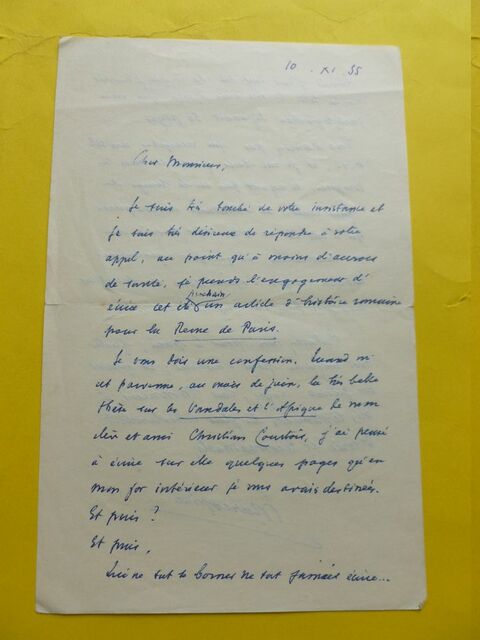 10 . XI . 55
Cher Monsieur,
Je suis très touché de votre insistance et
je suis très désireux de répondre à votre
appel, au point qu'à moins d'accroc
de santé, je prends l'engagement d'
écrire cet été prochain un article d'histoire romaine
pour la Revue de Paris.
Je vous dois une confession. Quand m'
est parvenue, au mois de juin, la très belle
thèse sur les Vandales et l'Afrique de mon
cher et ami Christian Courtois, j'ai pensé
à écrire sur elle quelques pages qu'en
mon for intérieur je vous avais destinées.
Et puis ?
Et puis,
Qui ne sut se borner ne sut jamais écrire...